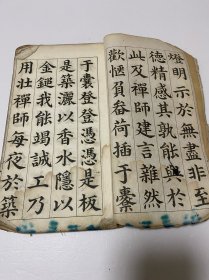 燈明示於無盡非至
德精感其孰能與於
此及禪師建言雜然
歡愜負畚荷插于橐
于囊登登憑憑是板
是築灑以香水隱以
金鎚我能竭誠工乃
用壯禪師每夜於築